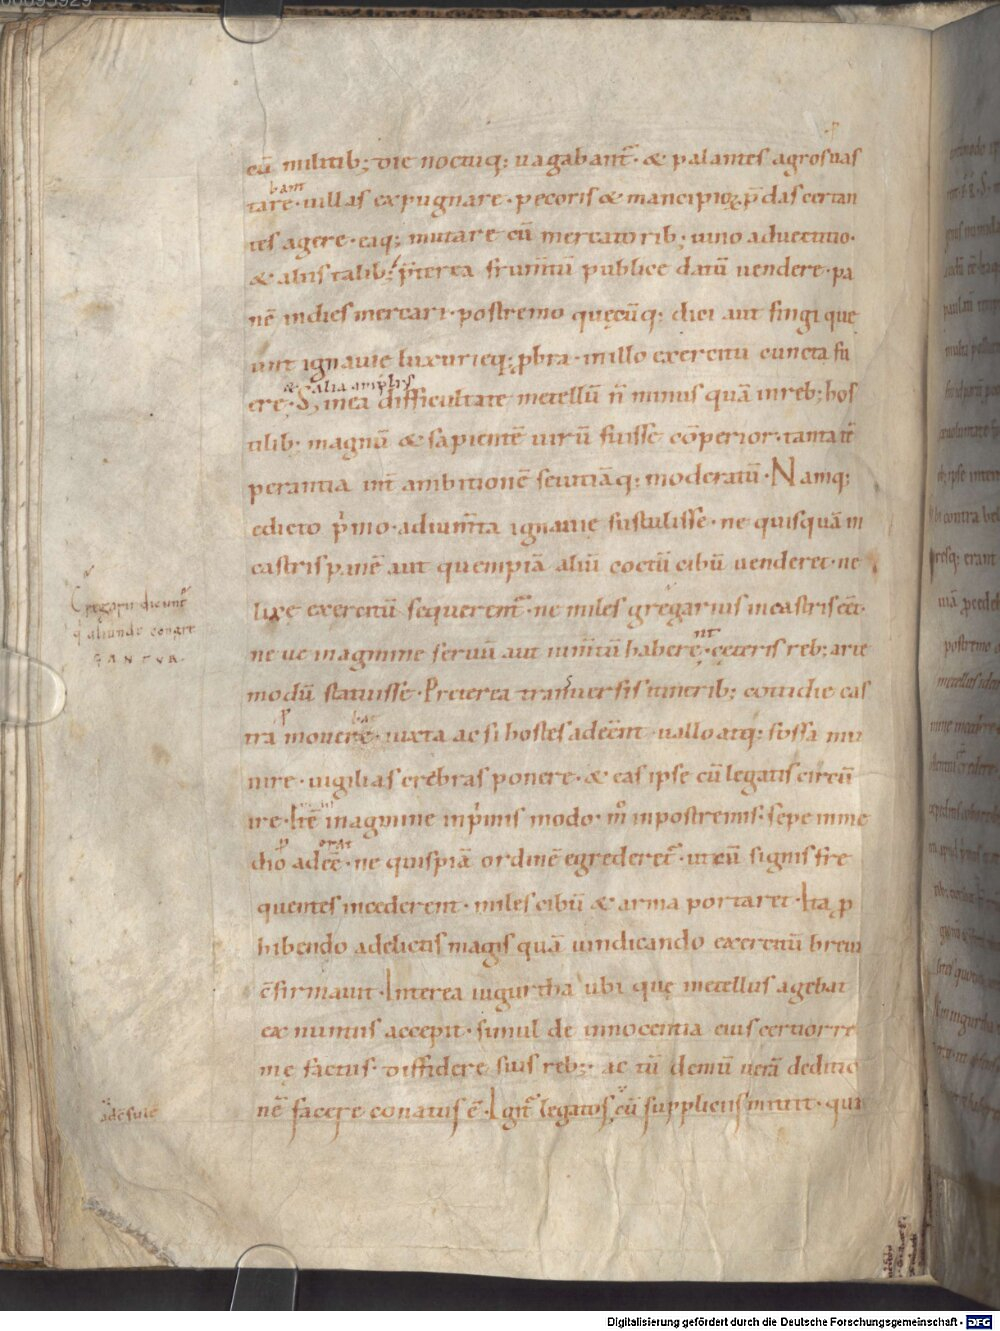 cū militib; die noctuq; uagabant᷑. & palantes agros uas
bant
tare. uillas expugnare. pecoris & mancipioꝝ p̄das certan
tes agere. eaq; mutare cū mercatorib; uino aduecticio.
& aliis talib; p̄terea frum̄tū publice datū uendere. pa
nē indies mercari. postremo quęcūq; dici aut fingi que
unt ignauie luxurieq; ꝓbra. in illo exercitu cuncta fu
& alia amplius
ere. S; in ea difficultate metellū n̄ minus quā in reb; hos
tilib; magnū & sapientē uirū fuisse cōperior. tanta tē
perantia int̄ ambitionē seuitiāq; moderatū. Namq;
edicto p̄mo. adium̄ta ignauie sustulisse. ne quisquā in
castris panē aut quempiā aliū coctū cibū uenderet. ne
lixe exercitū sequerent᷑. ne miles gregarius in castris
ne ue in agmine seruū aut ium̄tū haberet. ceteris reb; arte
modū statuisse. Preterea transuersis itinerib; cottidie cas
tra mouere. iuxta ac si hostes adeēnt. uallo atq; fossa mu
nire. uigilias crebras ponere. & eas ipse cū legatis circū
ire. Itē in agmine in p̄mis modo. m̊ in postremis. sepe in me
dio adeē. ne quispiā ordinē egrederet᷑. ut cū signis fre
quentes incederent. miles cibū & arma portaret. Ita ꝓ
hibendo a delictis magis quā uindicando exercitū breui
cf̄irmauit. Interea iugurtha ubi quę metellus agebat
ex nuntiis accepit. simul de innocentia eius certior ro
mę factus. diffidere suis reb; ac tū demū uerā deditio
nē facere conatus ē. Igit᷑ legatos cū suppliciis mittit. qui
Gregarii dicunt᷑
q̇ aliunde congre
GANTVR.
Digitalisierung gefördert durch die Deutsche Forschungsgemeinschaft - DFG